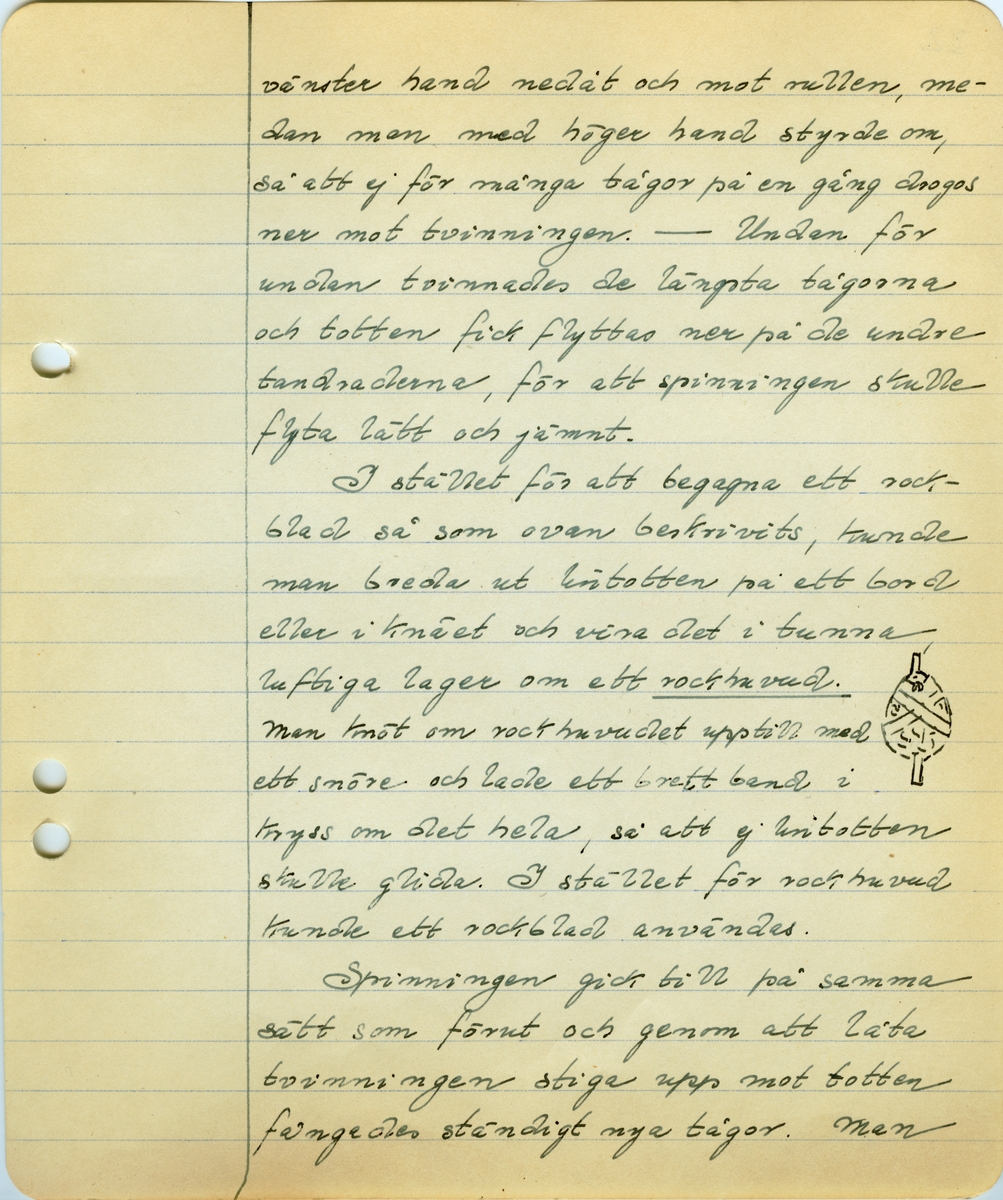 vänster hand nedåt och mot rullen, me-
dan man med höger hand styrde om,
så att ej för många tågor på en gång drogos
ner mot tvinningen. — Undan för
undan tvinnades de längsta tågorna
och totten fick flyttas ner på de undre
tandraderna, för att spinningen skulle
flyta lätt och jämnt.
I stället för att begagna ett rock-
blad så som ovan beskrivits, kunde
man breda ut lintotten på ett bord
eller i knäet och vira det i tunna
luftiga lager om ett rockhuvud.
Man knöt om rockhuvudet upptill med
ett snöre och lade ett brett band i
kryss om det hela, så att ej lintotten
skulle glida. I stället för rockhuvud
kunde ett rockblad användas.
Spinningen gick till på samma
sätt som förut och genom att låta
tvinningen stiga upp mot totten
fångades ständigt nya tågor. Man